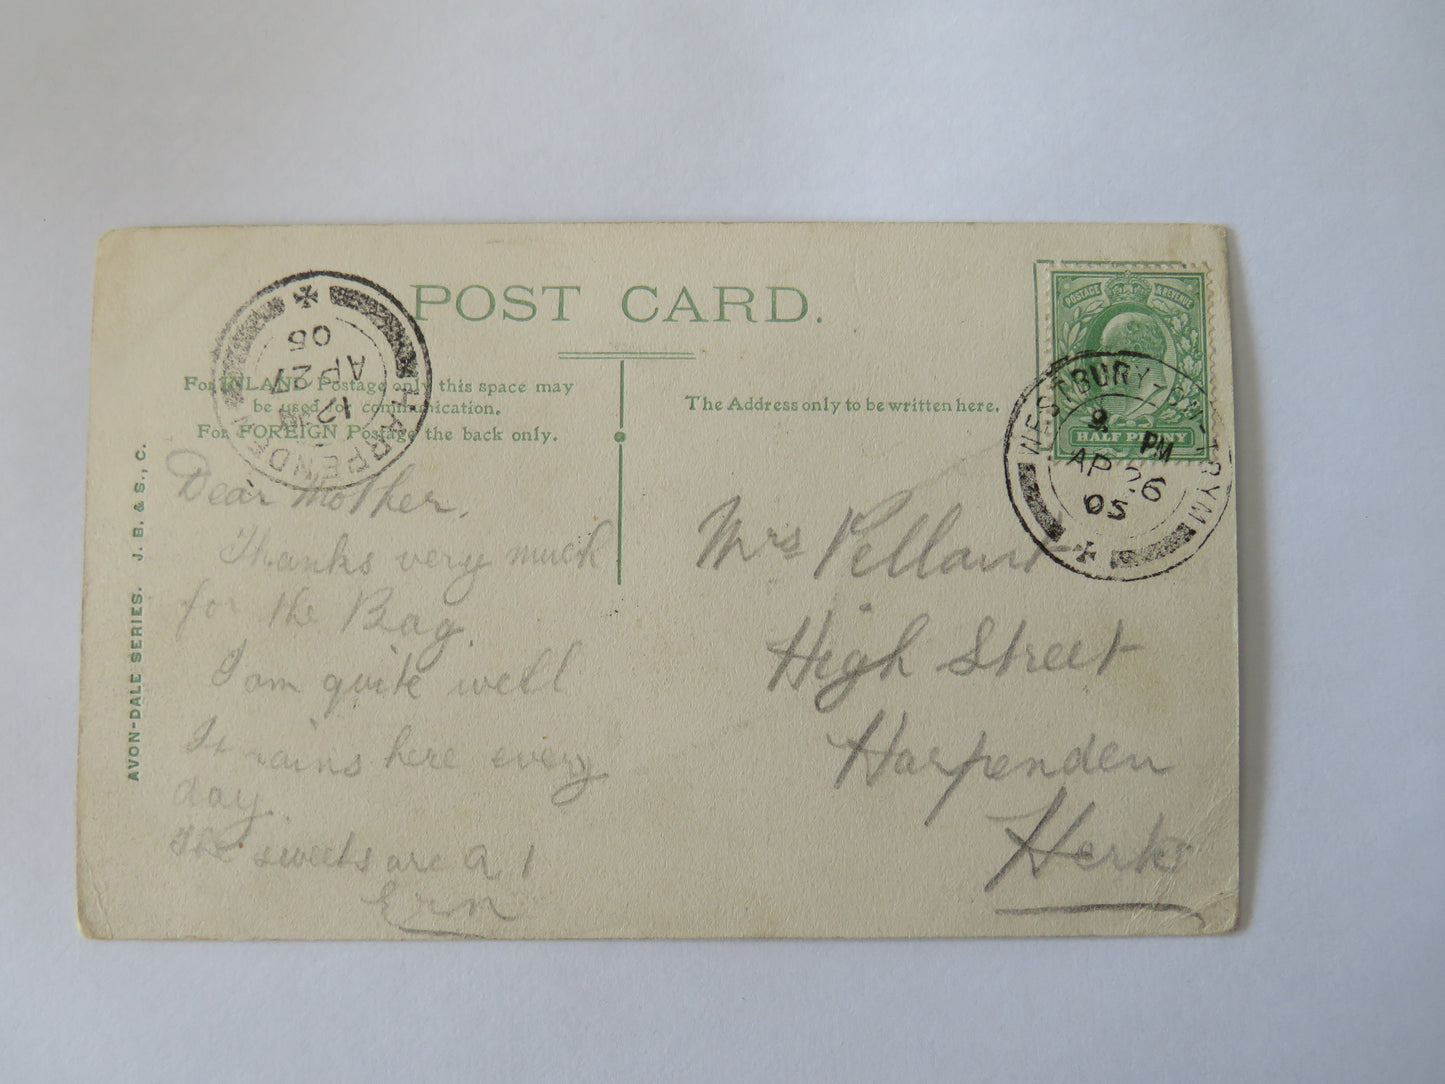 POST CARD.
For INLAND Postage only this space may
be used for communication.
For FOREIGN Postage the back only.
The Address only to be written here.
AVON-DALE SERIES. J. B. & S., C.
HARPENDEN
12
AP 27
05
POSTAGE & REVENUE
HALF PENNY
WESTBURY-ON-TRYM
9. PM
AP 26
05
Dear Mother,
Thanks very much
for the Bag.
I am quite well
It rains here every
day.
The sweets are A 1
Ern
Mrs Pellant
High Street
Harpenden
Herts